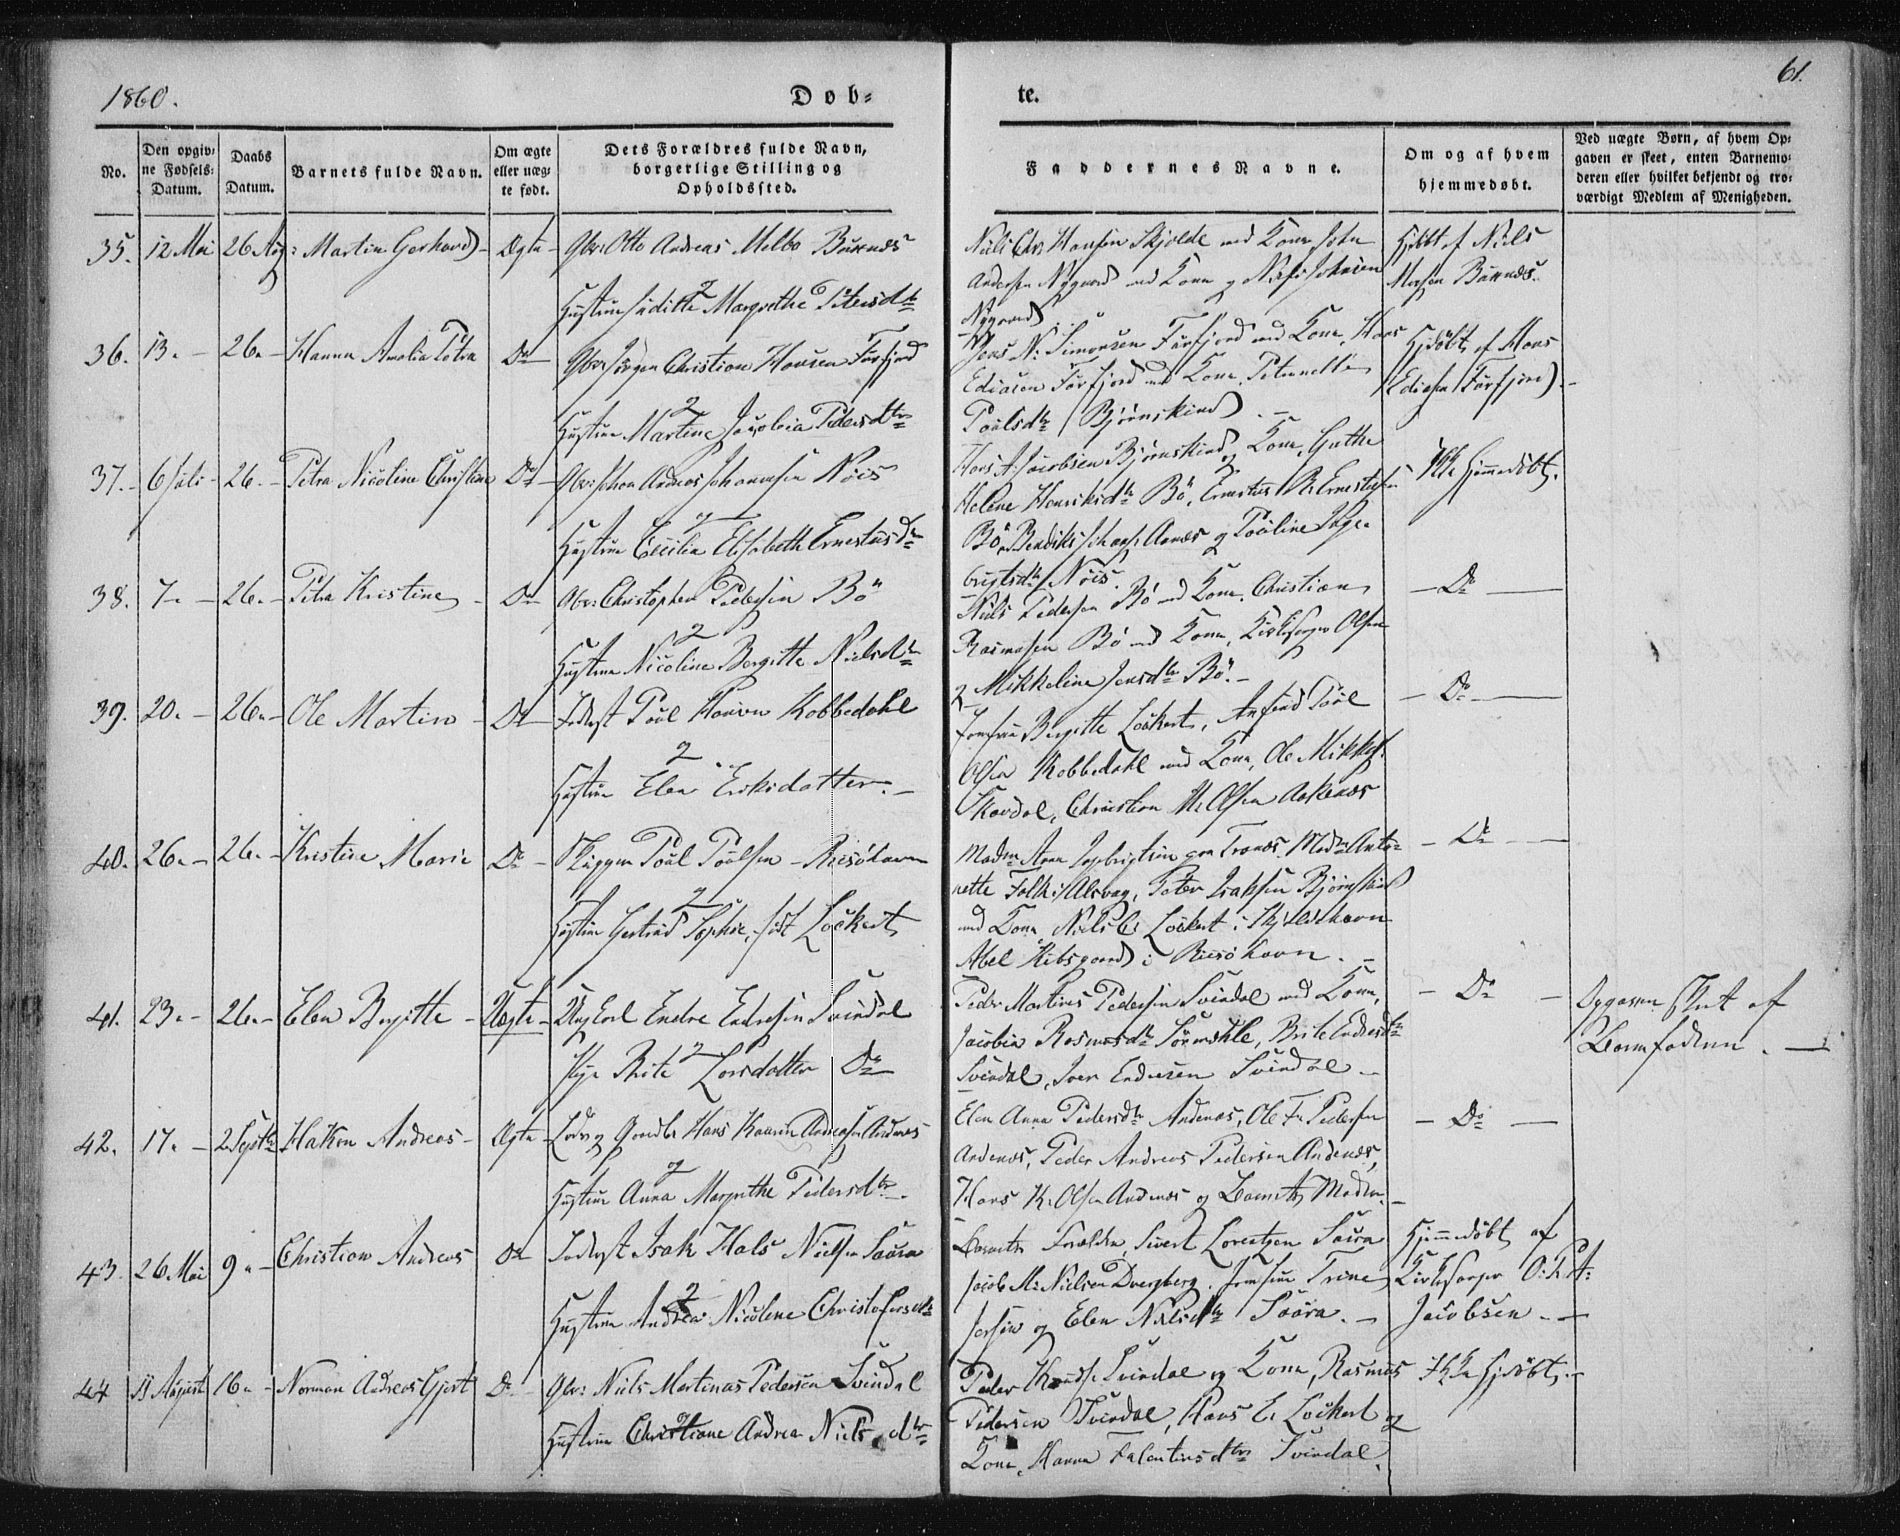 1860.
Døb-
te.
61.
No.
Den opgiv-
ne Fødsels-
Datum.
Daabs
Datum.
Barnets fulde Navn.
Om ægte
eller uæg-
te født.
Dets Forældres fulde Navn,
borgerlige Stilling og
Opholdssted.
Faddernes Navne.
Om og af hvem
hjemmedøbt.
Ved uægte Børn, af hvem Op-
gaven er skeet, enten Barnemo-
deren eller hvilket bekjendt og tro-
værdigt Medlem af Menigheden.
35. 12 Mai 26 Aug: Martin Gerhard Ægte Gbr: Otto Andreas Melbo Buknæs
Hustru Judithe Margrethe Petersdtr
Niels Chr. Hansen Skjolde med Kone, John
Andersen Nygaard med Kone og Niels Johnsen
Nygaard
Hjdøbt af Niels
Buknæs.
36. 13. 26. Hanna Amalia Petra Do Gbr: Jørgen Christian Hansen Forfjord
Hustru Martine Jacobia Pedersdtr
Jens N: Simonsen Forfjord med Kone, Hans
Ediasen Forfjord med Kone, Petunelle
Poulsdtr Bjørnskind
Hjdøbt af Hans
Ediasen Forfjord.
37. 6 Juli 26. Petra Nicoline Christine Do Gbr: Johan Andreas Johannesen Nøis
Hustru Cecilia Elisabeth Ernestusdtr
Hans A: Jacobsen Bjørnskind og Kone, Guthe
Helene Henriksdtr Bø, Ernestus R. Ernestusen
Bø, Bendiks Johans. Aanæs og Pouline Inge-
brigtsdtr Nøis.
Ikke hjemmedøbt.
38. 7. 26. Petra Kristine Do Gbr: Christopher Pedersen Bø
Hustru Nicoline Bergitte Nielsdtr
Niels Pedersen Bø med Kone, Christian
Rasmussen Bø med Kone, Kirkesanger Olsen
& Mikkeline Jensdtr Bø.
Do
39. 20. 26. Ole Martin Do Inderst Poul Hansen Kobbedahl
Hustru Elen Eriksdatter.
Jomfru Bergitte Lockert, Poul
Olsen Kobbedahl med Kone, Ole Mikkels.
Skovdal, Christian M. Olsen Aaknæs
Do
40. 26. 26. Kristine Marie Do Skipper Poul Poulsen Risøhavn
Hustru Gertrud Sophie, født Lockert
Madm Anna Ingbrigtsen paa Tranæs, Madm Anto-
nette Falk i Alsvaag, Peter Isaksen Bjørnskind
med Kone, Niels C: Lockert i Skjoldehavn
Abel Kibsgaard i Risøhavn.
Do
41. 23. 26. Elen Bergitte Uægte Ungkarl Endre Endresen Svindal
Pige Brite Larsdatter Do
Peder Martinus Pedersen Svindal med Kone,
Jacobia Rasmusdtr Sørmehle, Brite Endresdtr
Svindal, Iver Endresen Svindal
Do
Opgaven skeet af
Barnefadren.
42. 17. 2 Septbr Hakon Andreas Ægte Lods og Gaardbr Hans Andreasen Andenæs
Hustru Anna Margrethe Pedersdtr.
Elen Anna Pedersdtr Andenæs, Ole Fr. Pedersen
Andenæs, Peder Andreas Pedersen Andenæs,
Hans K. Olsen Andenæs og Barnets Moder.
Do
43. 26. Mai 9. Christian Andreas Do Inderst Isak Hals Nielsen Saura
Hustru Andrea Nicoline Christofersdtr
Barnets Forældre, Sivert Lorentzen Saura
Jacob M: Nielsen Dverberg, Jomfru Trine
og Elen Nielsdtr Saura.
Hjemmedøbt af
Kirkesanger O: P. A:
Jacobsen.
44 August 16. Norman Andreas Gjert Do Gbr: Niels Martinas Pedersen Svindal
Hustru Christiane Andrea Nielsdtr
Peder Svindal og Kone, Rasmus
Pedersen Svindal, Hans E. Lockert og
Kone, Hanna Falentinsdtr Svindal.
Ikke hjdøbt.